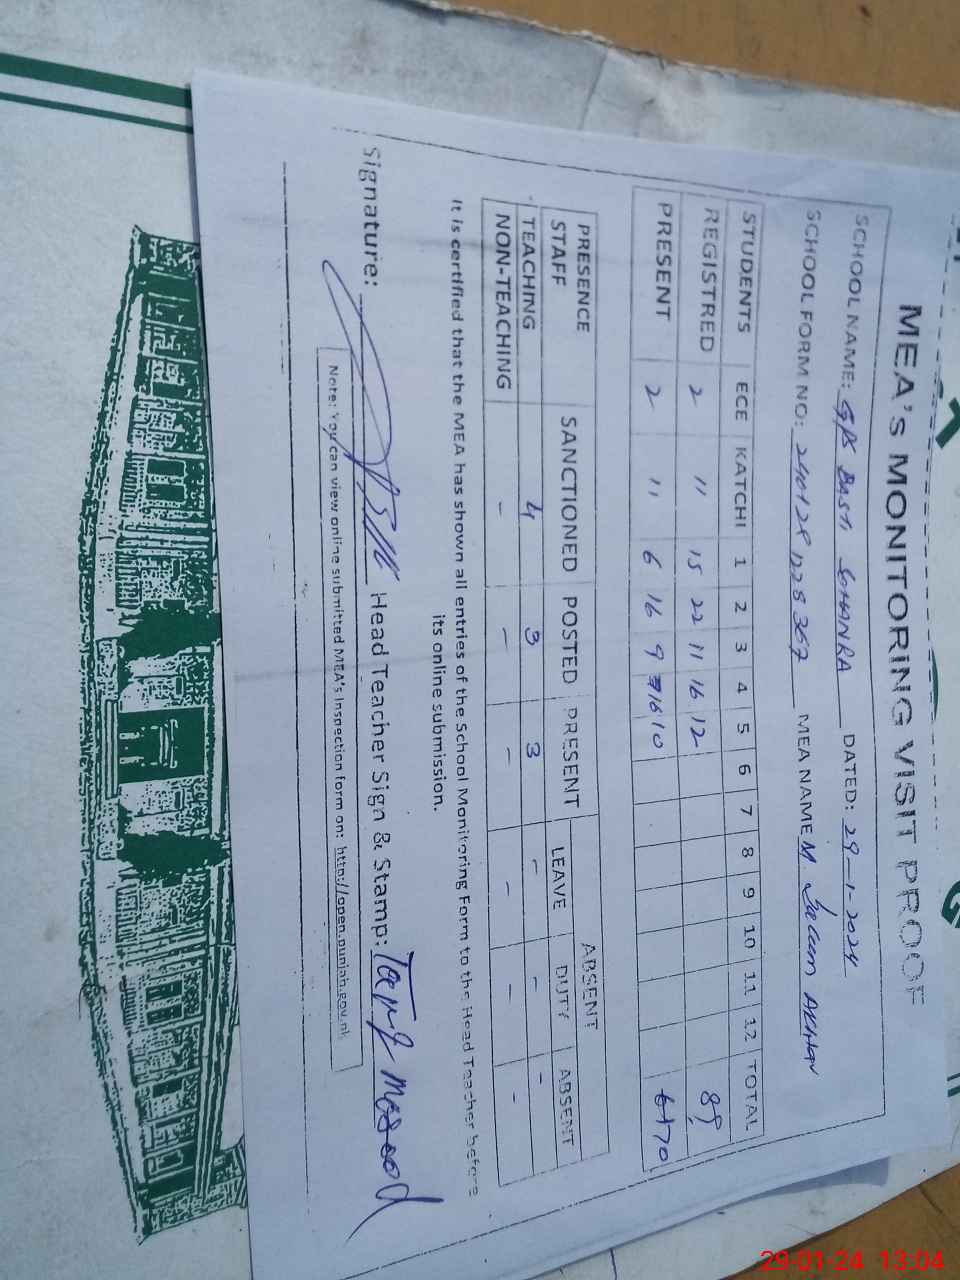 MEA'S MONITORING VISIT PROOF
SCHOOL NAME: GPS BASTI GHANRA DATED: 29-1-2024
SCHOOL FORM NO: MEA NAME M. Saleem AKHtar
STUDENTS ECE KATCHI 1 2 3 4 5 6 7 8 9 10 11 12 TOTAL
REGISTRED 2 11 15 22 11 16 12 89
PRESENT 2 11 6 16 9 16 10 70
PRESENCE STAFF SANCTIONED POSTED PRESENT ABSENT
LEAVE DUTY ABSENT
TEACHING 4 3 3 - - -
NON-TEACHING - - - - - -
It is certified that the MEA has shown all entries of the School Monitoring Form to the Head Teacher before
its online submission.
Signature: Head Teacher Sign & Stamp: Tariq Masood
Note: You can view online submitted MEA's Inspection form on: http://open.punjab.gov.pk
29-01-24 13:04